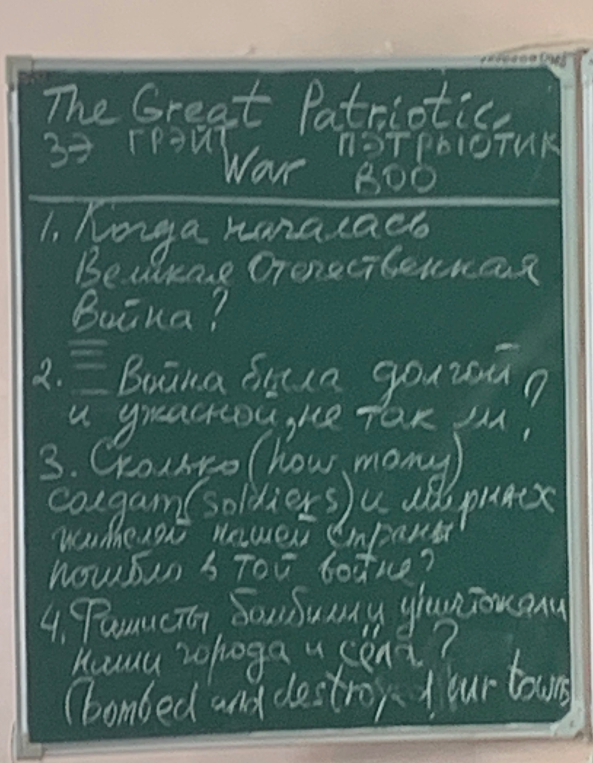 The Great Patriotic
ЗЭ ГРЭЙТ ПЭТРЫОТИК
War ВОО
1. Когда началась
Великая Отечественная
Война?
2. Война была долгой
и ужасной, не так ли?
3. Сколько (how many)
солдат (soldiers) и мирных
жителей нашей страны
погибло в той войне?
4. Фашисты бомбили и уничтожали
наши города и сёла?
(bombed and destroyed our towns